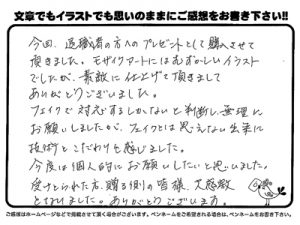 文章でもイラストでも思いのままにご感想をお書き下さい!!
今回、退職者の方へのプレゼントとして購入させて
頂きました。モザイクアートにはむずかしいイラスト
でしたが、素敵に仕上げて頂きまして
ありがとうございました。
フェイクで対応するしかないと判断し、無理に
お願いしましたが、フェイクとは思えない出来に
技術とこだわりを感じました。
今度は個人的にお願いしたいと思いました。
受けとられた方、贈る側の皆様、大感激
となりました。ありがとうございます。
ご感想はホームページなどで掲載させて頂く場合がございます。ペンネームをご希望される場合は、ペンネームをお書き下さい。